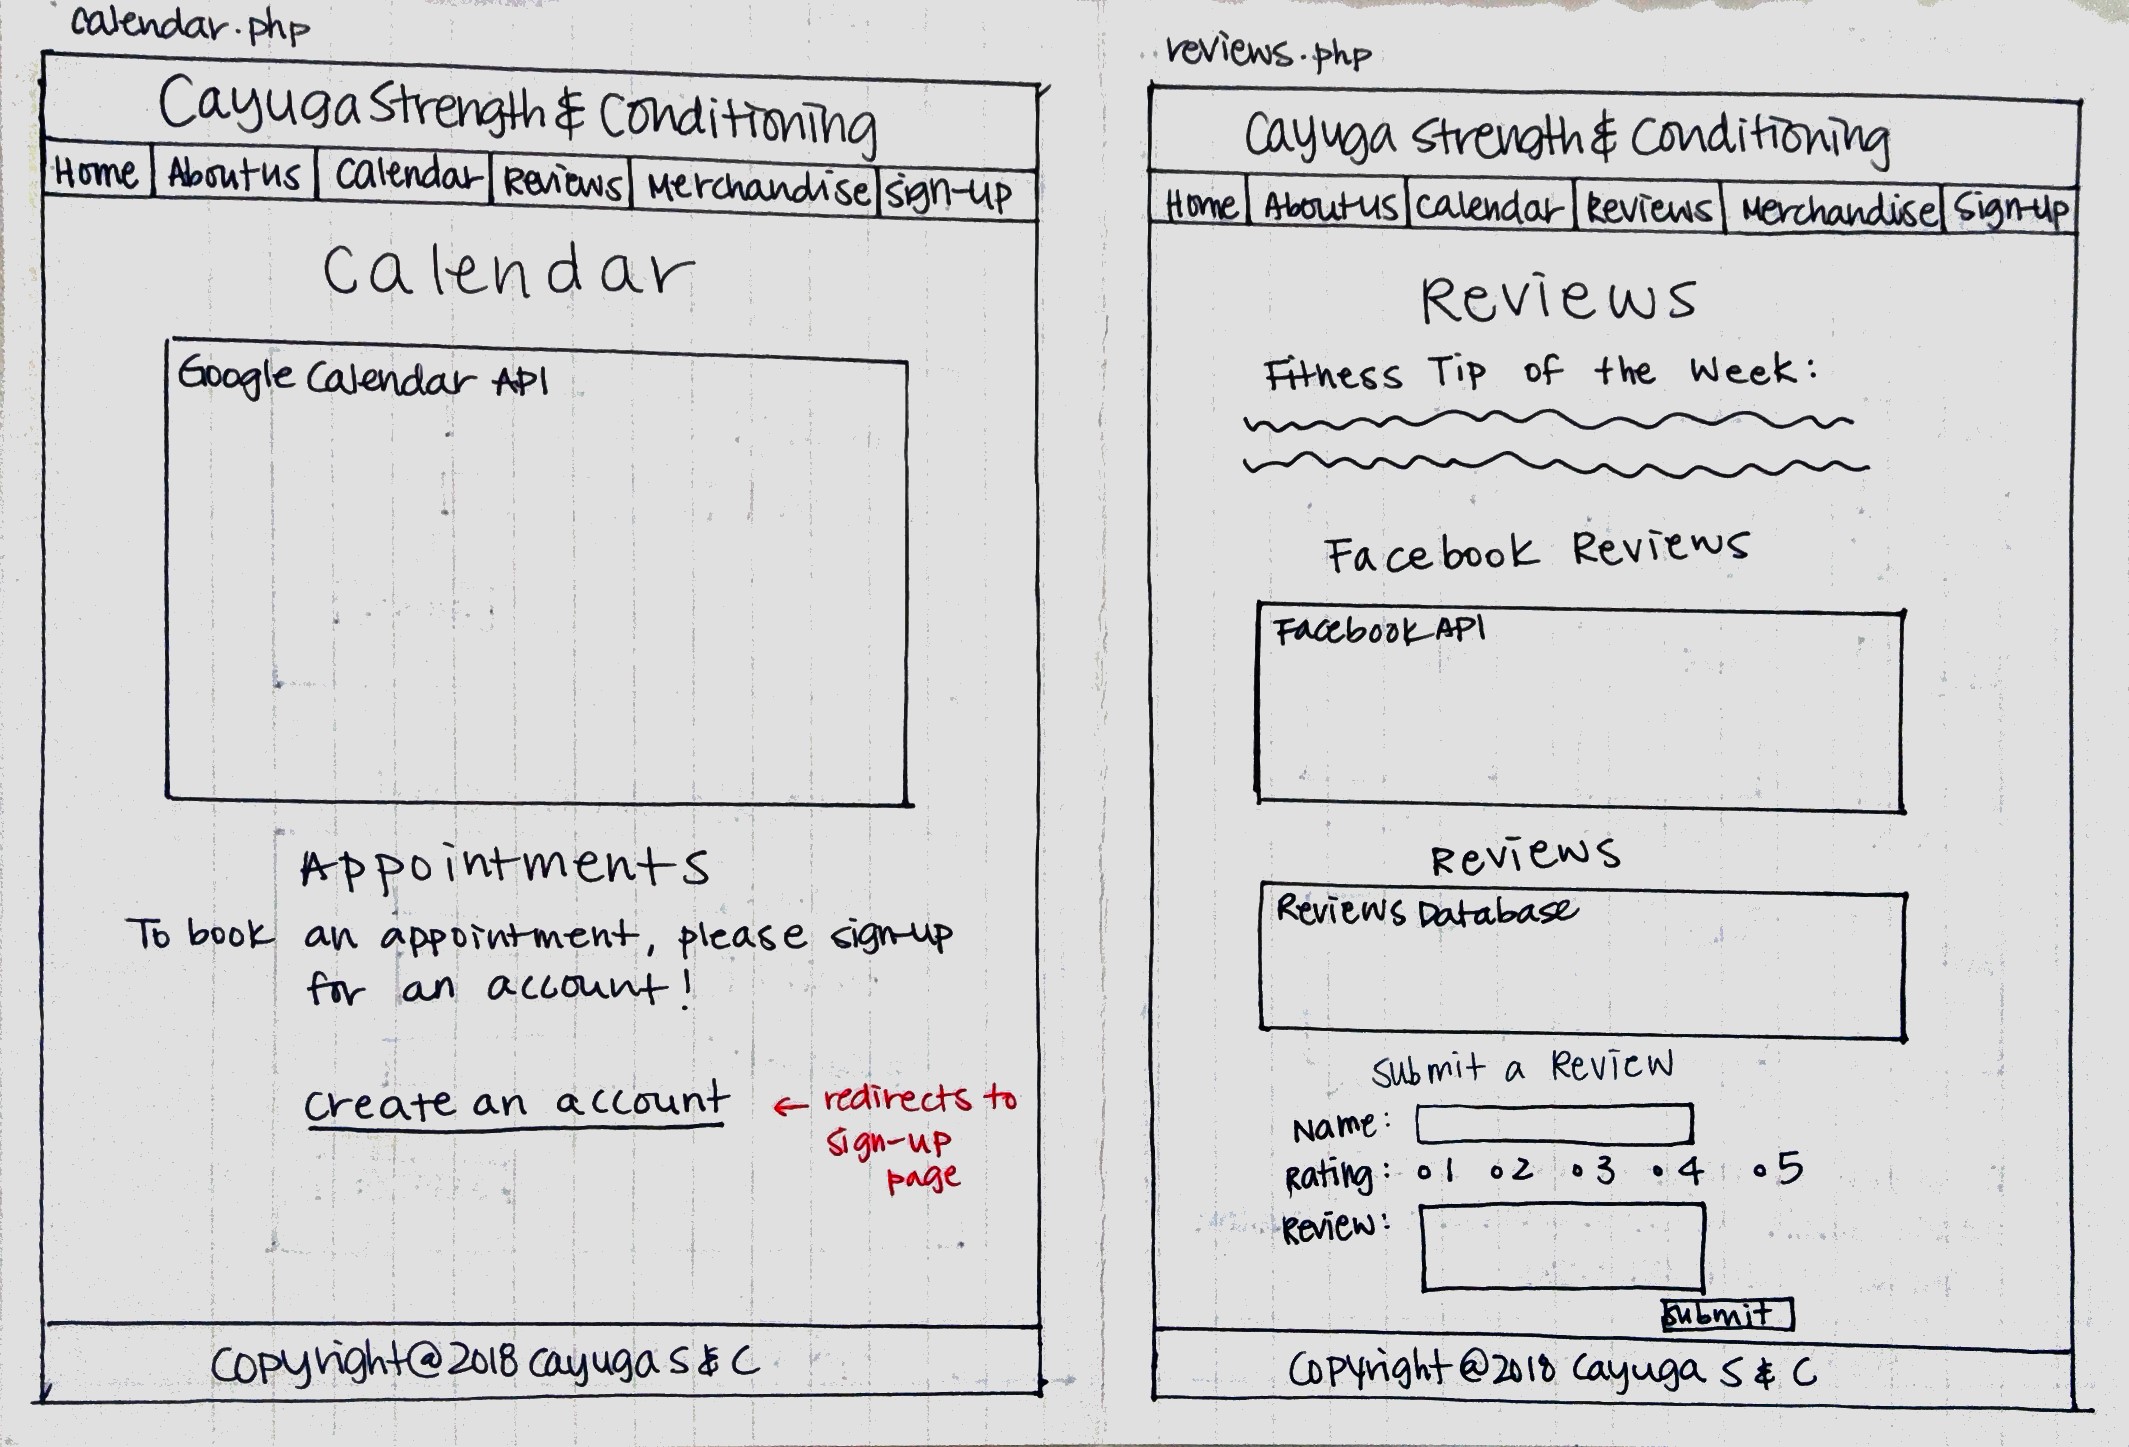 calendar.php
Cayuga Strength & Conditioning
Home About us Calendar Reviews Merchandise sign-up
Calendar
Google Calendar API
Appointments
To book an appointment, please sign-up
for an account!
create an account ← redirects to
sign-up
page
copyright@2018 cayuga S & C
reviews.php
Cayuga Strength & Conditioning
Home About us Calendar Reviews Merchandise Sign-up
Reviews
Fitness Tip of the Week:
Facebook Reviews
Facebook API
Reviews
Reviews Database
Submit a Review
Name:
Rating: 1 2 3 4 5
Review:
submit
Copyright @2018 Cayuga S & C